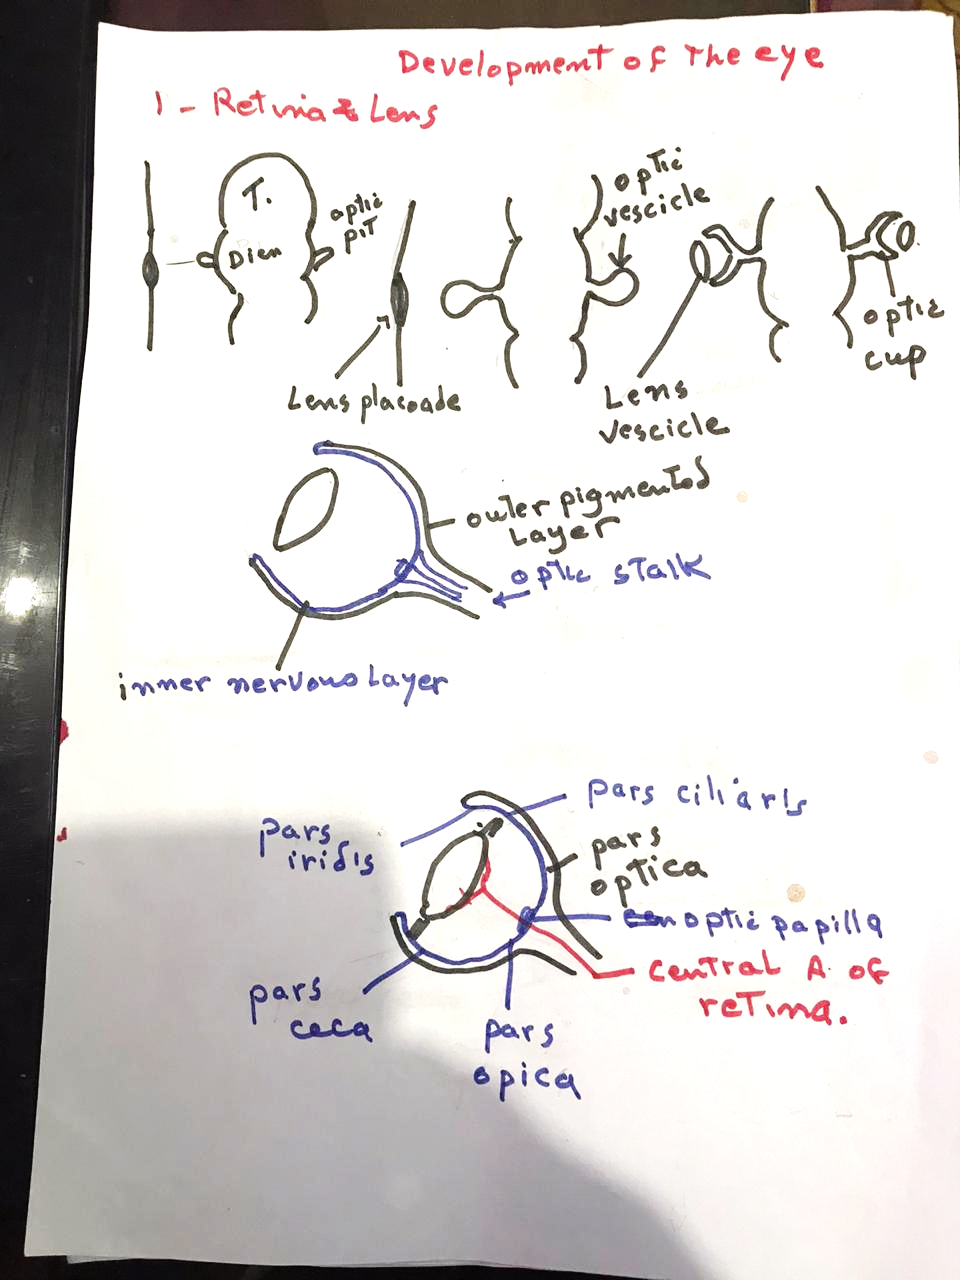 Development of The eye
1 - Retinia & Lens
T.
Dien
optic
pit
optic
vescicle
Lens placoade
Lens
vescicle
optic
cup
outer pigmented
Layer
optic stalk
inner nervous Layer
pars ciliaris
pars
iridis
pars
optica
optic papilla
central A. of
retina.
pars
ceca
pars
opica